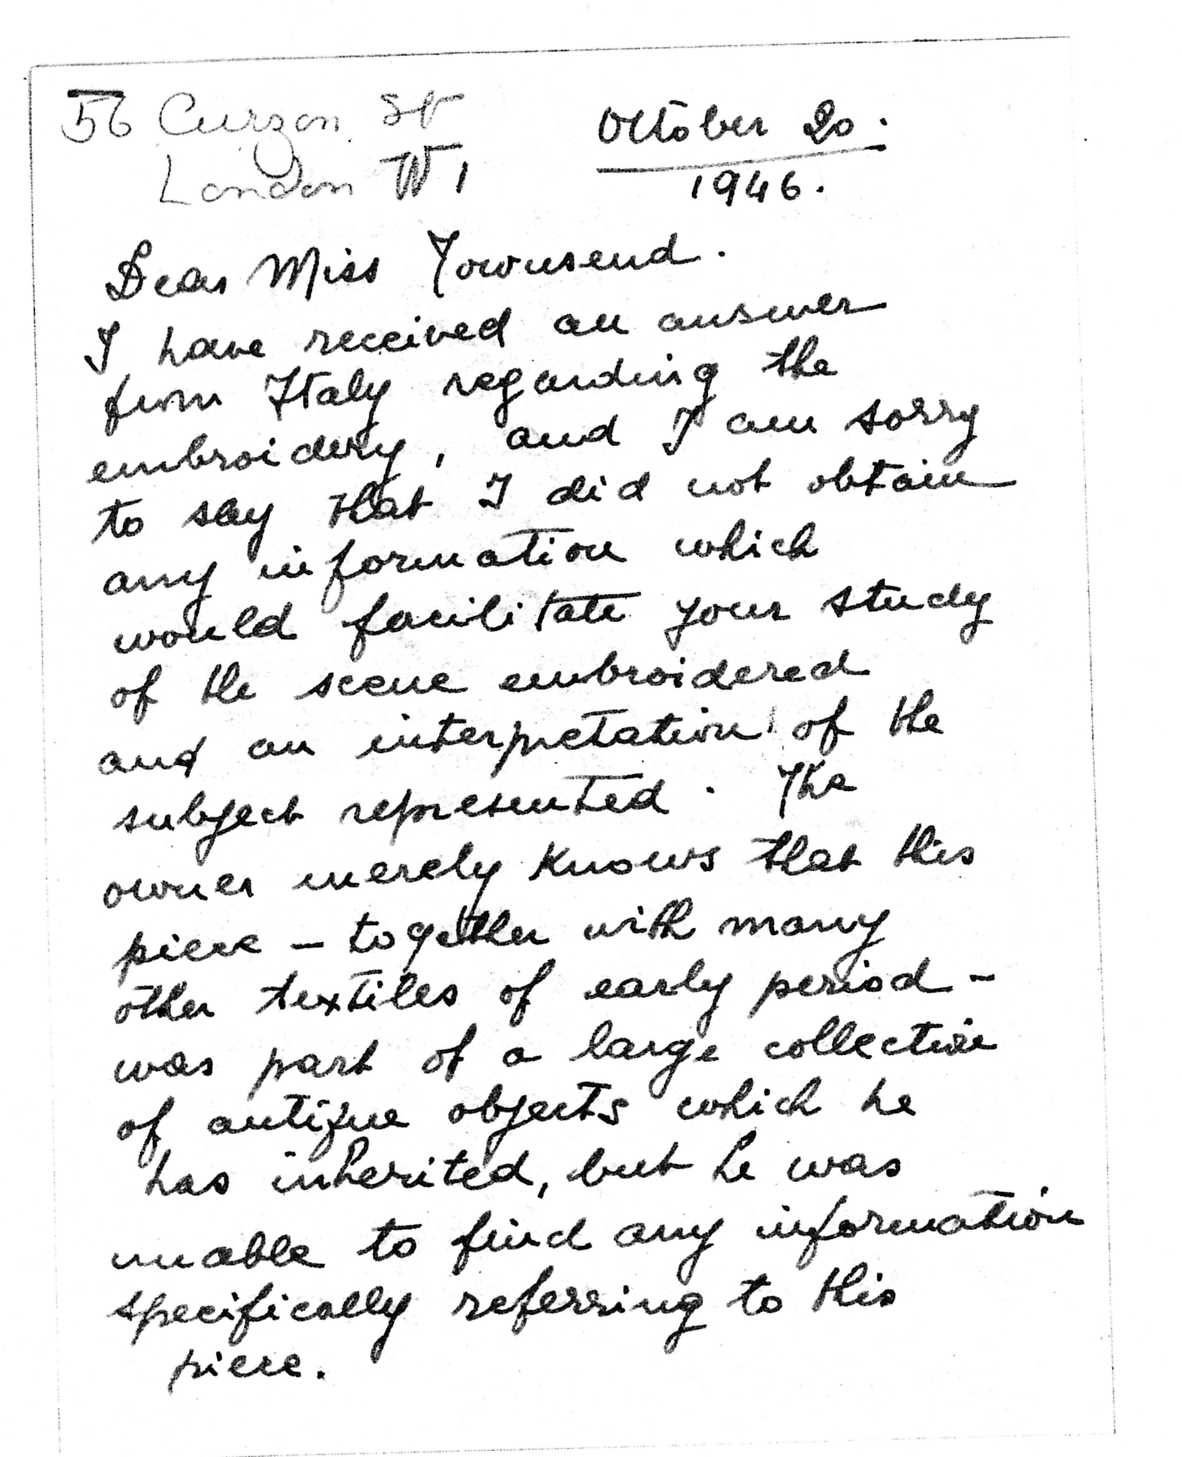 56 Curzon St
London W1
October 20.
1946.
Dear Miss Townsend.
I have received an answer
from Italy regarding the
embroidery, and I am sorry
to say that I did not obtain
any information which
would facilitate your study
of the scene embroidered
and an interpretation of the
subject represented. The
owner merely knows that this
piece – together with many
other textiles of early period –
was part of a large collection
of antique objects which he
has inherited, but he was
unable to find any information
specifically referring to this
piece.